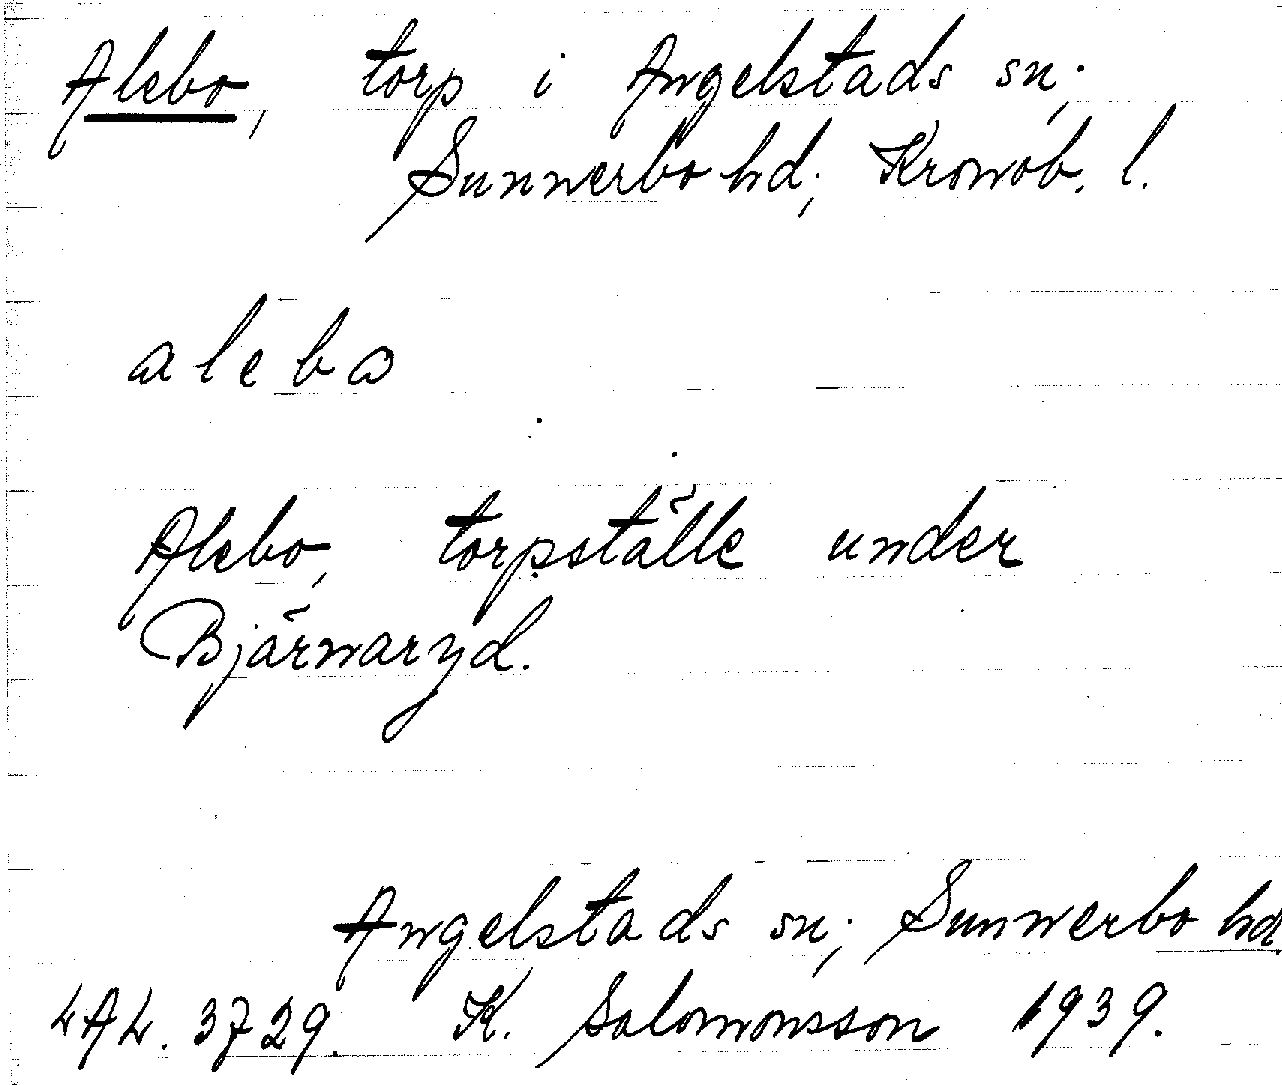 Alebo, torp i Angelstads sn;
Sunnerbo hd; Kronob. l.
alebo
Alebo, torpställe under
Bjärnaryd.
Angelstads sn; Sunnerbo hd
LAL. 3729. K. Salomonsson 1939.